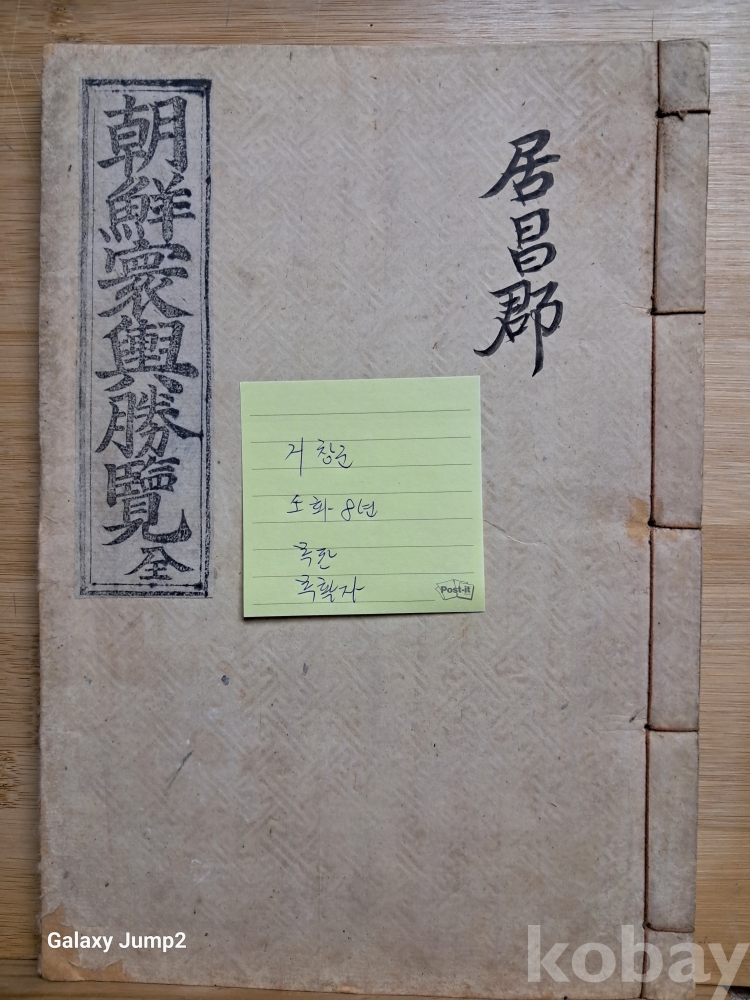 居昌郡
朝鮮寰輿勝覽 全
거창군
소화 8년
목판
목활자
Post-it
Galaxy Jump2
kobay